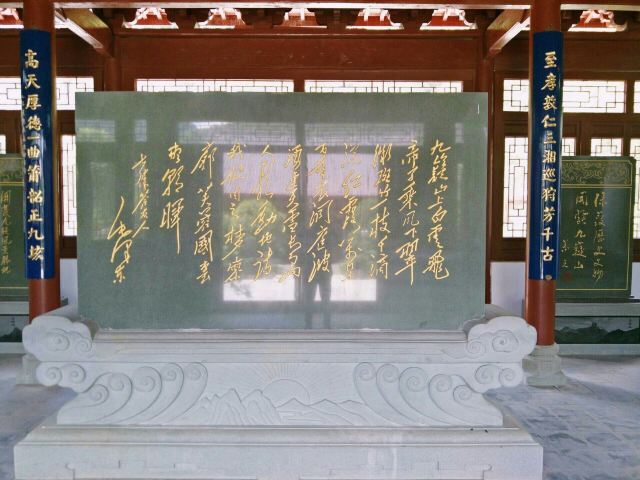 至孝敦仁三湘巡狩芳千古
九嶷山上白雲飛
帝子乘風下翠
微斑竹一枝千滴
泪紅霞萬朵
百重衣洞庭波
涌連天雪長島
人歌動地詩
我欲因之夢寥
廓芙蓉國裏
盡朝暉
七律答友人
毛澤東
高天厚德一曲簫韶正九垓
保護歷史文物
開發九嶷山